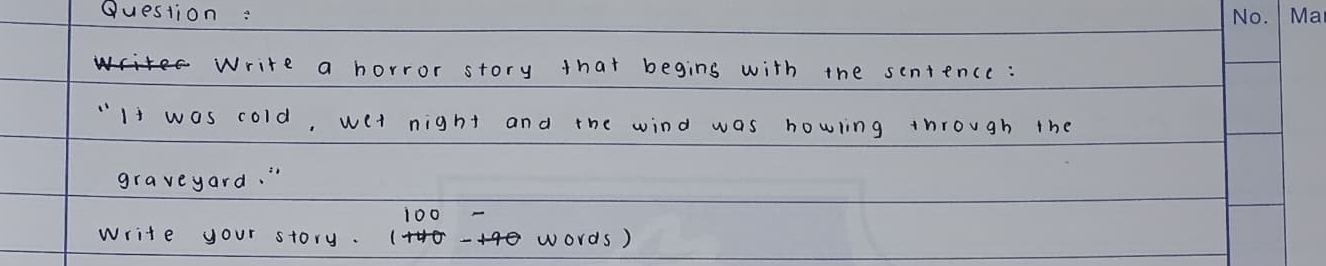 Question :
No. Mar
Writer Write a horror story that begins with the sentence :
"It was cold, wet night and the wind was howling through the
graveyard."
100 -
Write your story. (140 - 190 words)